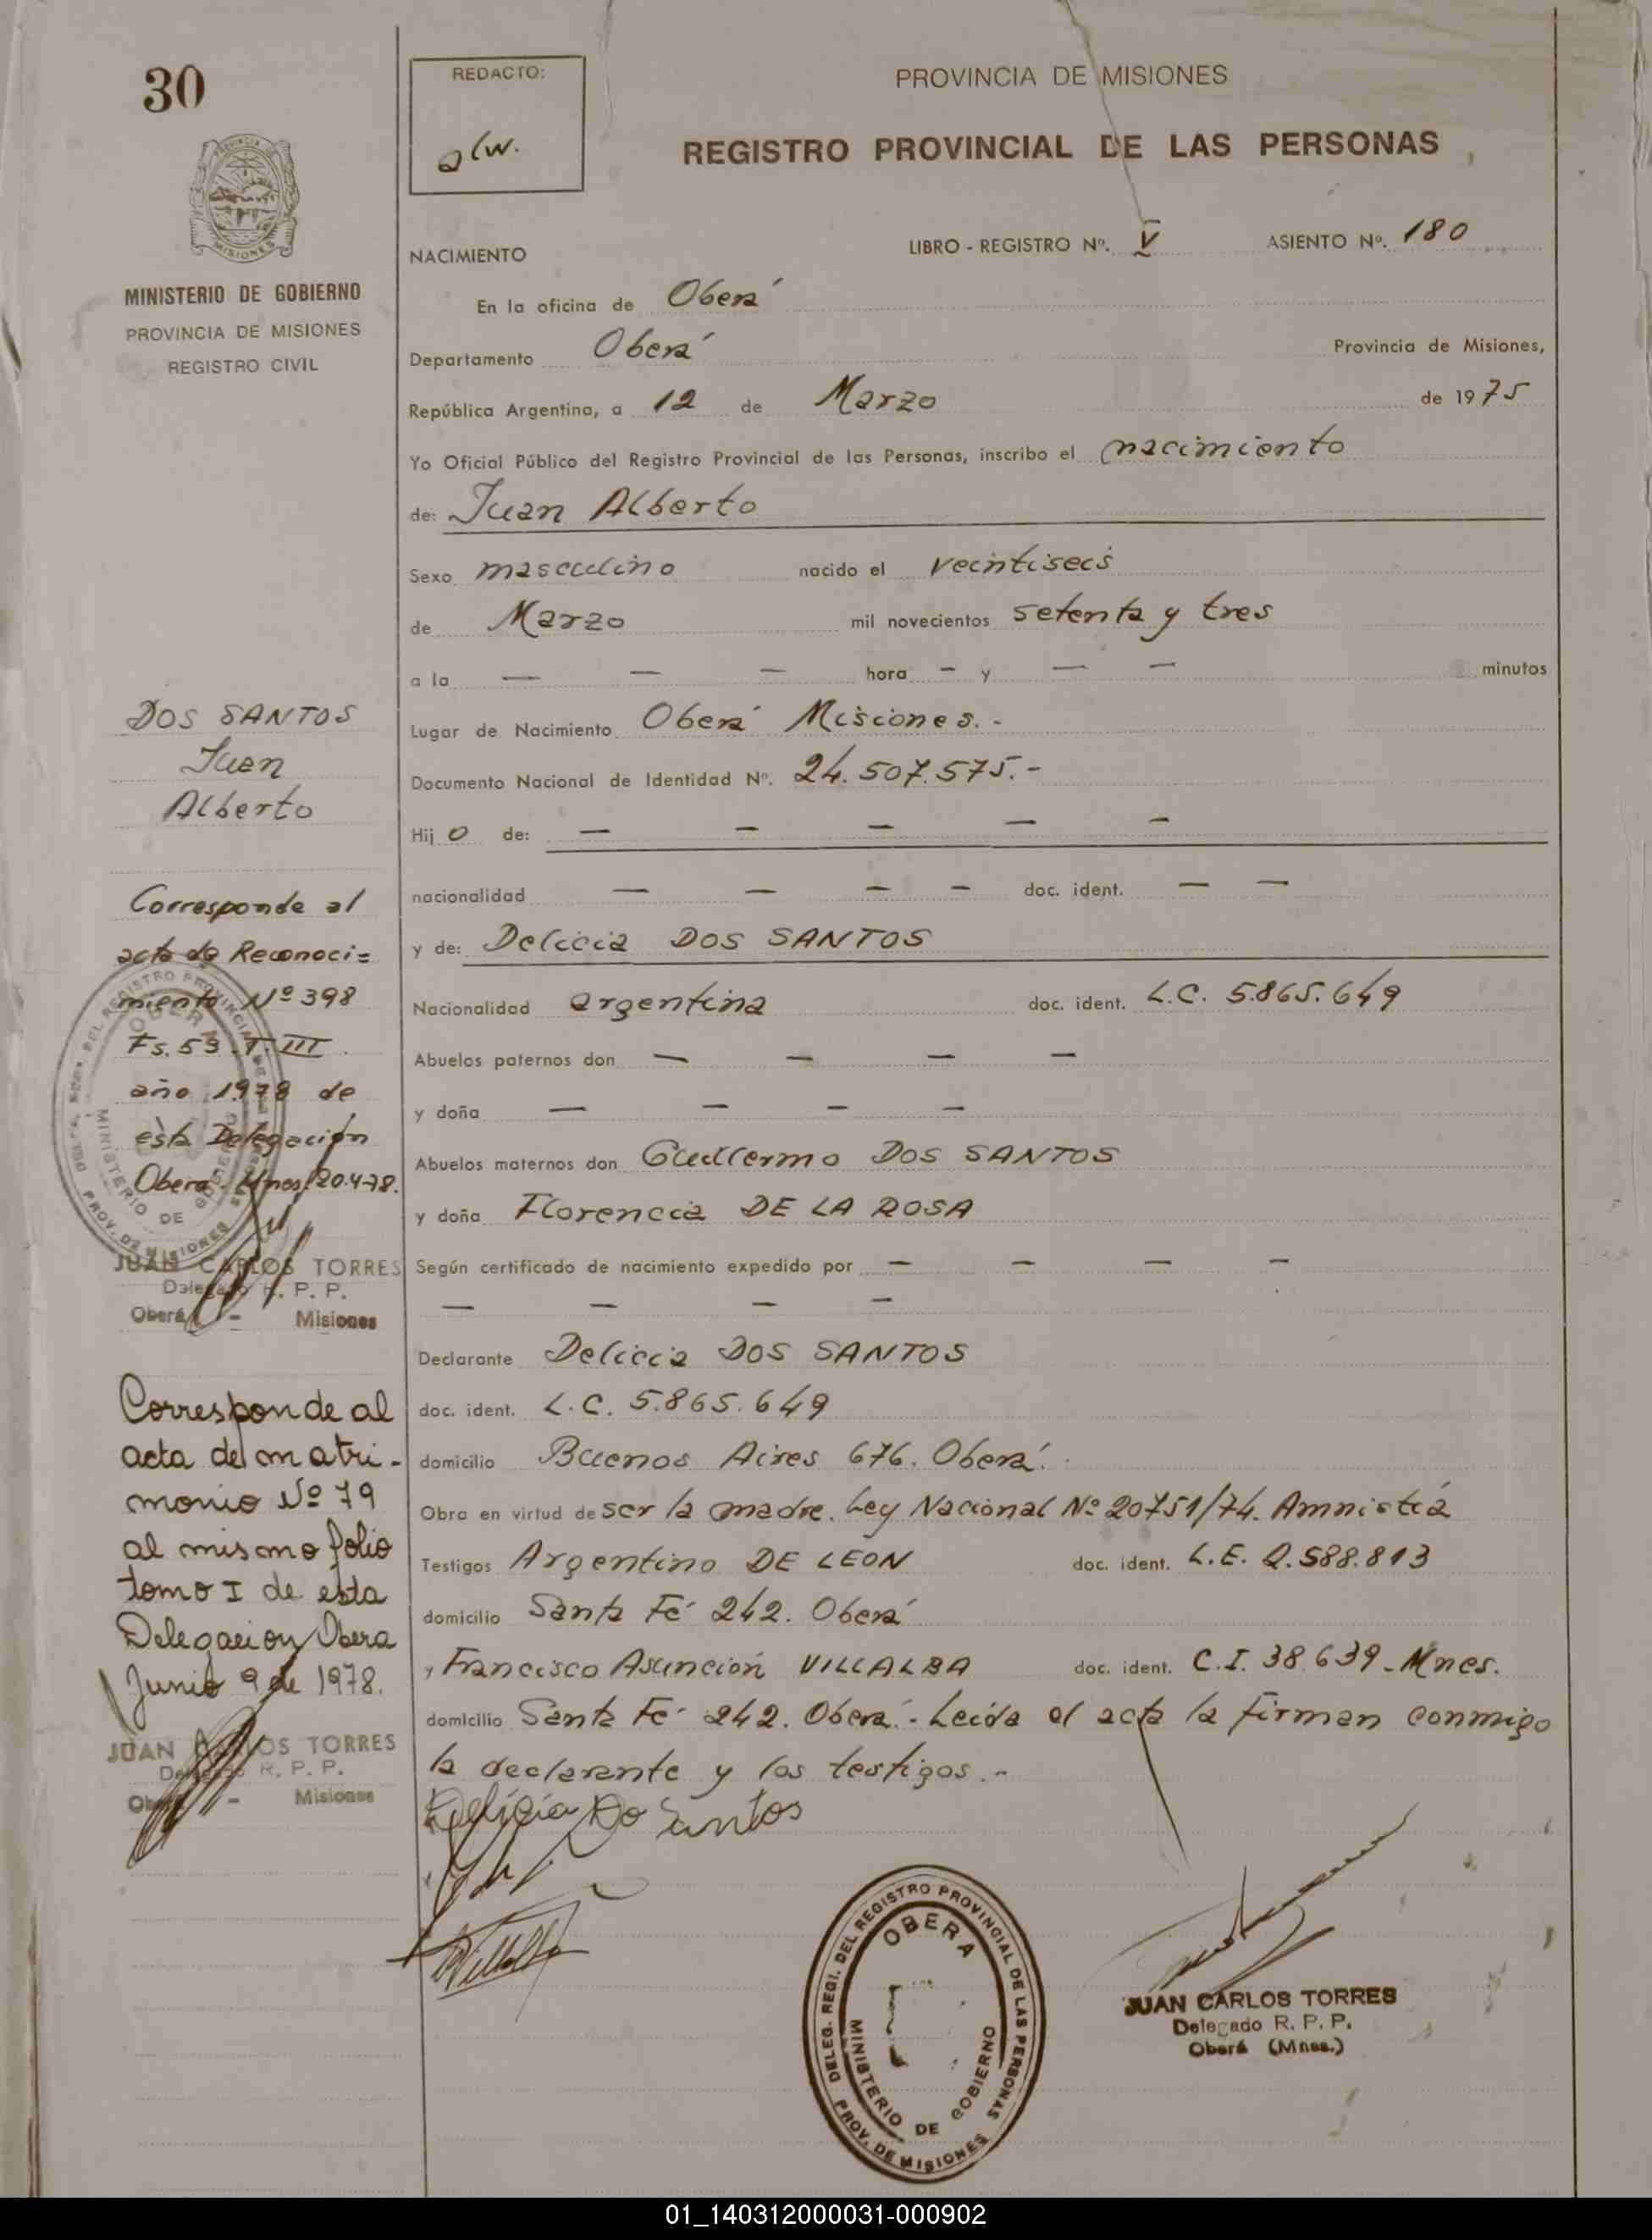 30
MINISTERIO DE GOBIERNO
PROVINCIA DE MISIONES
REGISTRO CIVIL
REDACTO:
alw.
PROVINCIA DE MISIONES
REGISTRO PROVINCIAL DE LAS PERSONAS
NACIMIENTO LIBRO - REGISTRO Nº. V ASIENTO Nº. 180
En la oficina de Oberá
Departamento Oberá Provincia de Misiones,
República Argentina, a 12 de Marzo de 1975
Yo Oficial Público del Registro Provincial de las Personas, inscribo el nacimiento
de: Juan Alberto
Sexo masculino nacido el veintiseis
de Marzo mil novecientos setenta y tres
a la — — — hora - y — — minutos
Lugar de Nacimiento Oberá Misiones.-
Documento Nacional de Identidad Nº. 24.507.575.-
Hijo de: — — — — —
nacionalidad — — — — doc. ident. — —
y de: Delicia DOS SANTOS
Nacionalidad argentina doc. ident. L.C. 5.865.649
Abuelos paternos don — — — —
y doña — — — —
Abuelos maternos don Guillermo DOS SANTOS
y doña Florencia DE LA ROSA
Según certificado de nacimiento expedido por — — — —
— — — —
Declarante Delicia DOS SANTOS
doc. ident. L.C. 5.865.649
domicilio Buenos Aires 676. Oberá.
Obra en virtud de ser la madre. Ley Nacional Nº 20751/74. Amnistia
Testigos Argentino DE LEON doc. ident. L.E. 2.588.813
domicilio Santa Fé 242. Oberá
y Francisco Asunción VILLALBA doc. ident. C.I. 38.639-Mnes.
domicilio Santa Fé 242. Oberá.- Leida el acta la firman conmigo
la declarante y los testigos.-
Delicia Do Santos
Villalba
DELEG. REGI. DEL REGISTRO PROVINCIAL DE LAS PERSONAS
OBERA
MINISTERIO DE GOBIERNO
PROV. DE MISIONES
JUAN CARLOS TORRES
Delegado R. P. P.
Oberá (Mnes.)
DOS SANTOS
Juan
Alberto
Corresponde al
acta de Reconoci=
miento Nº 398
Fs. 53 T. III
año 1978 de
esta Delegación
Obera - Mnes. 20-4-78.
JUAN CARLOS TORRES
Delegado R. P. P.
Oberá - Misiones
Corresponde al
acta de matri-
monio Nº 79
al mismo folio
tomo I de esta
Delegacion Obera
Junio 9 de 1978.
JUAN CARLOS TORRES
Delegado R. P. P.
Oberá - Misiones
01_140312000031-000902